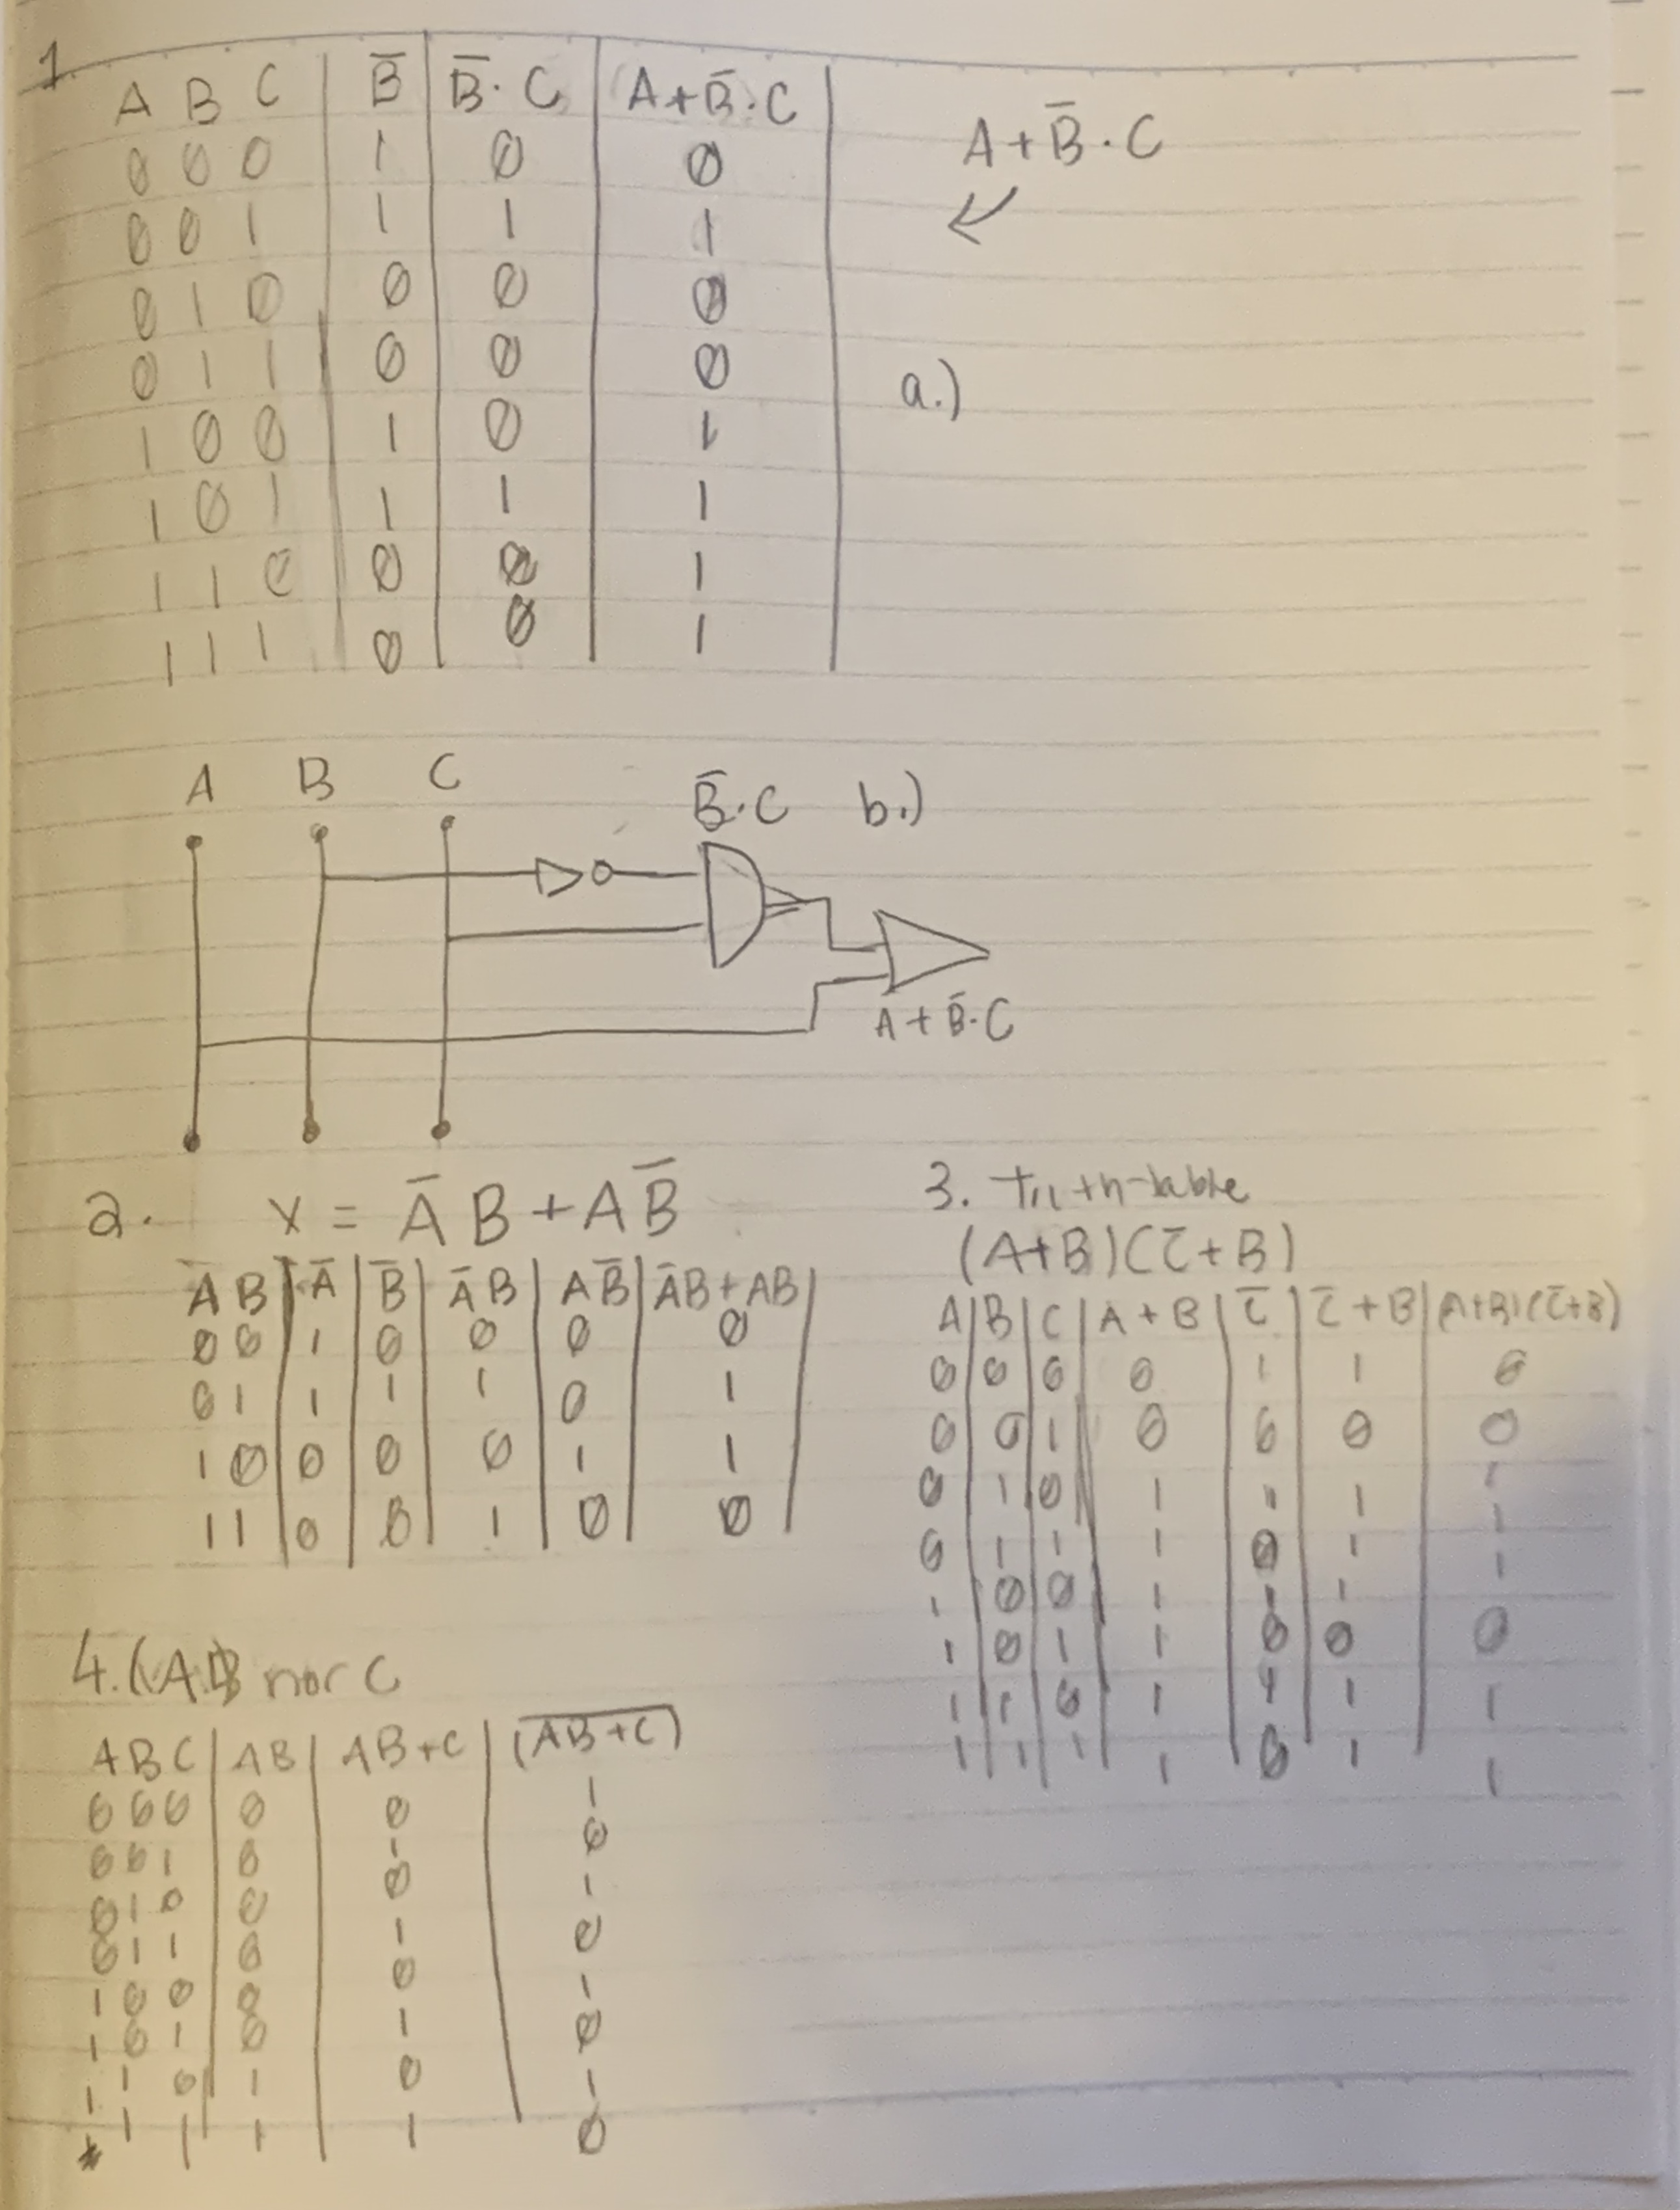 1.
A B C | B̅ | B̅·C | A+B̅·C
0 0 0 | 1 | 0 | 0
0 0 1 | 1 | 1 | 1
0 1 0 | 0 | 0 | 0
0 1 1 | 0 | 0 | 0
1 0 0 | 1 | 0 | 1
1 0 1 | 1 | 1 | 1
1 1 0 | 0 | 0 | 1
1 1 1 | 0 | 0 | 1
A+B̅·C
a.)
A B C
B̅·C b.)
A+B̅·C
2. X = A̅ B + A B̅
A̅ B | A̅ | B̅ | A̅ B | A B̅ | A̅B+AB
0 0 | 1 | 0 | 0 | 0 | 0
0 1 | 1 | 1 | 1 | 0 | 1
1 0 | 0 | 0 | 0 | 1 | 1
1 1 | 0 | 0 | 1 | 0 | 0
3. truth-table
(A+B)(C̅+B)
A | B | C | A + B | C̅ | C̅ + B | (A+B)(C̅+B)
0 | 0 | 0 | 0 | 1 | 1 | 0
0 | 0 | 1 | 0 | 0 | 0 | 0
0 | 1 | 0 | 1 | 1 | 1 | 1
0 | 1 | 1 | 1 | 0 | 1 | 1
1 | 0 | 0 | 1 | 1 | 1 | 1
1 | 0 | 1 | 1 | 0 | 0 | 0
1 | 1 | 0 | 1 | 1 | 1 | 1
1 | 1 | 1 | 1 | 0 | 1 | 1
4. (AB) nor C
A B C | AB | AB+C | (A̅B̅+̅C̅)
0 0 0 | 0 | 0 | 1
0 0 1 | 0 | 1 | 0
0 1 0 | 0 | 0 | 1
0 1 1 | 0 | 1 | 0
1 0 0 | 0 | 0 | 1
1 0 1 | 0 | 1 | 0
1 1 0 | 1 | 0 | 1
1 1 | 1 | 1 | 0